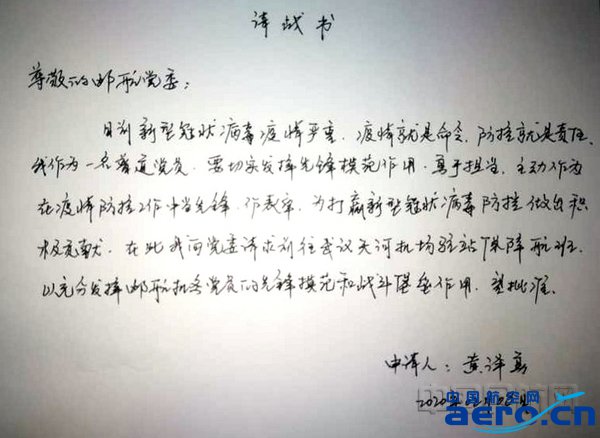 请战书
尊敬的邮航党委：
目前新型冠状病毒疫情严重，疫情就是命令，防控就是责任，
我作为一名普通党员，要切实发挥先锋模范作用，勇于担当，主动作为
在疫情防控工作中当先锋，作表率，为打赢新型冠状病毒防控做出积
极贡献，在此我向党委请求前往武汉天河机场驻站保障航班，
以充分发挥邮航机务党员的先锋模范和战斗堡垒作用，望批准。
申请人：黄洋
2020年
中国航空网
aero.cn